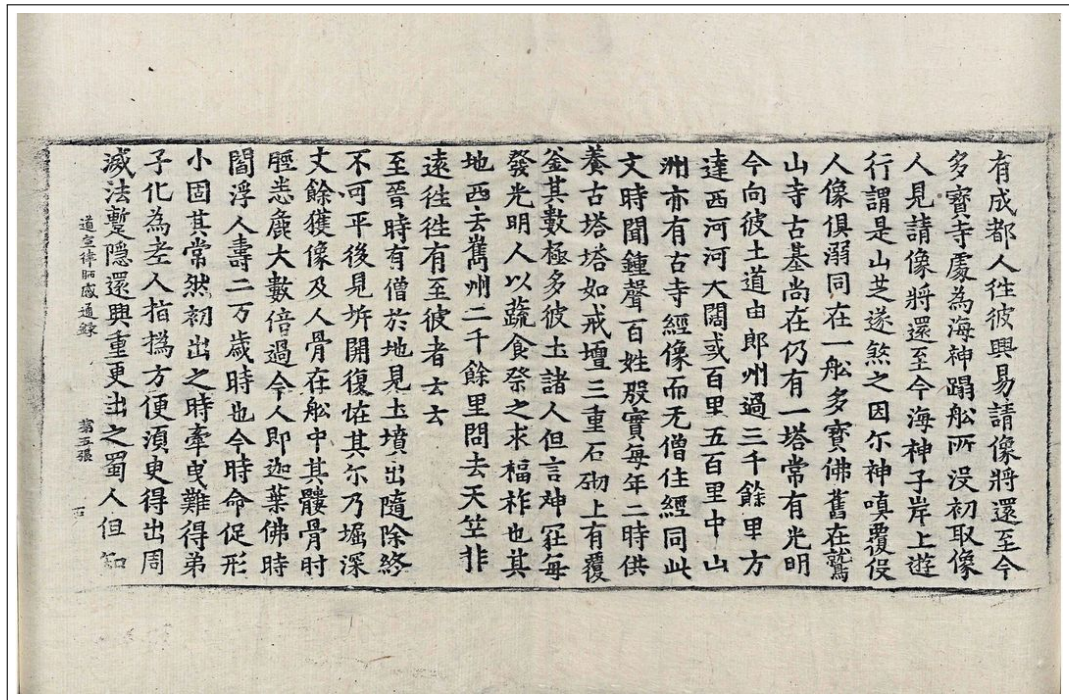 有成都人往彼興易請像將還至今
多寳寺處為海神蹋舩所没初取像
人見請像將還至今海神子岸上遊
行謂是山芝遂煞之因尒神嗔覆伇
人像俱溺同在一舩多寳佛舊在鷲
山寺古基尚在仍有一塔常有光明
今向彼土道由郎州過三千餘里方
達西河河大闊或百里五百里中山
洲亦有古寺經像而无僧住經同此
文時聞鍾聲百姓殷實每年二時供
養古塔塔如戒壇三重石砌上有覆
釜其數極多彼土諸人但言神冢每
發光明人以蔬食祭之求福祚也其
地西去嶲州二千餘里問去天竺非
逺往往有至彼者云云
至晉時有僧於地見土墳出隨除終
不可平後見坼開復恠其尒乃堀深
丈餘獲像及人骨在舩中其髏骨肘
脛悉麁大數倍過今人即迦葉佛時
閻浮人壽二万歲時也今時命促形
小固其常然初出之時牽曳難得弟
子化為老人指撝方便湏㬰得出周
滅法蹔隱還興重更出之蜀人但知
道宣律師感通録 第五張